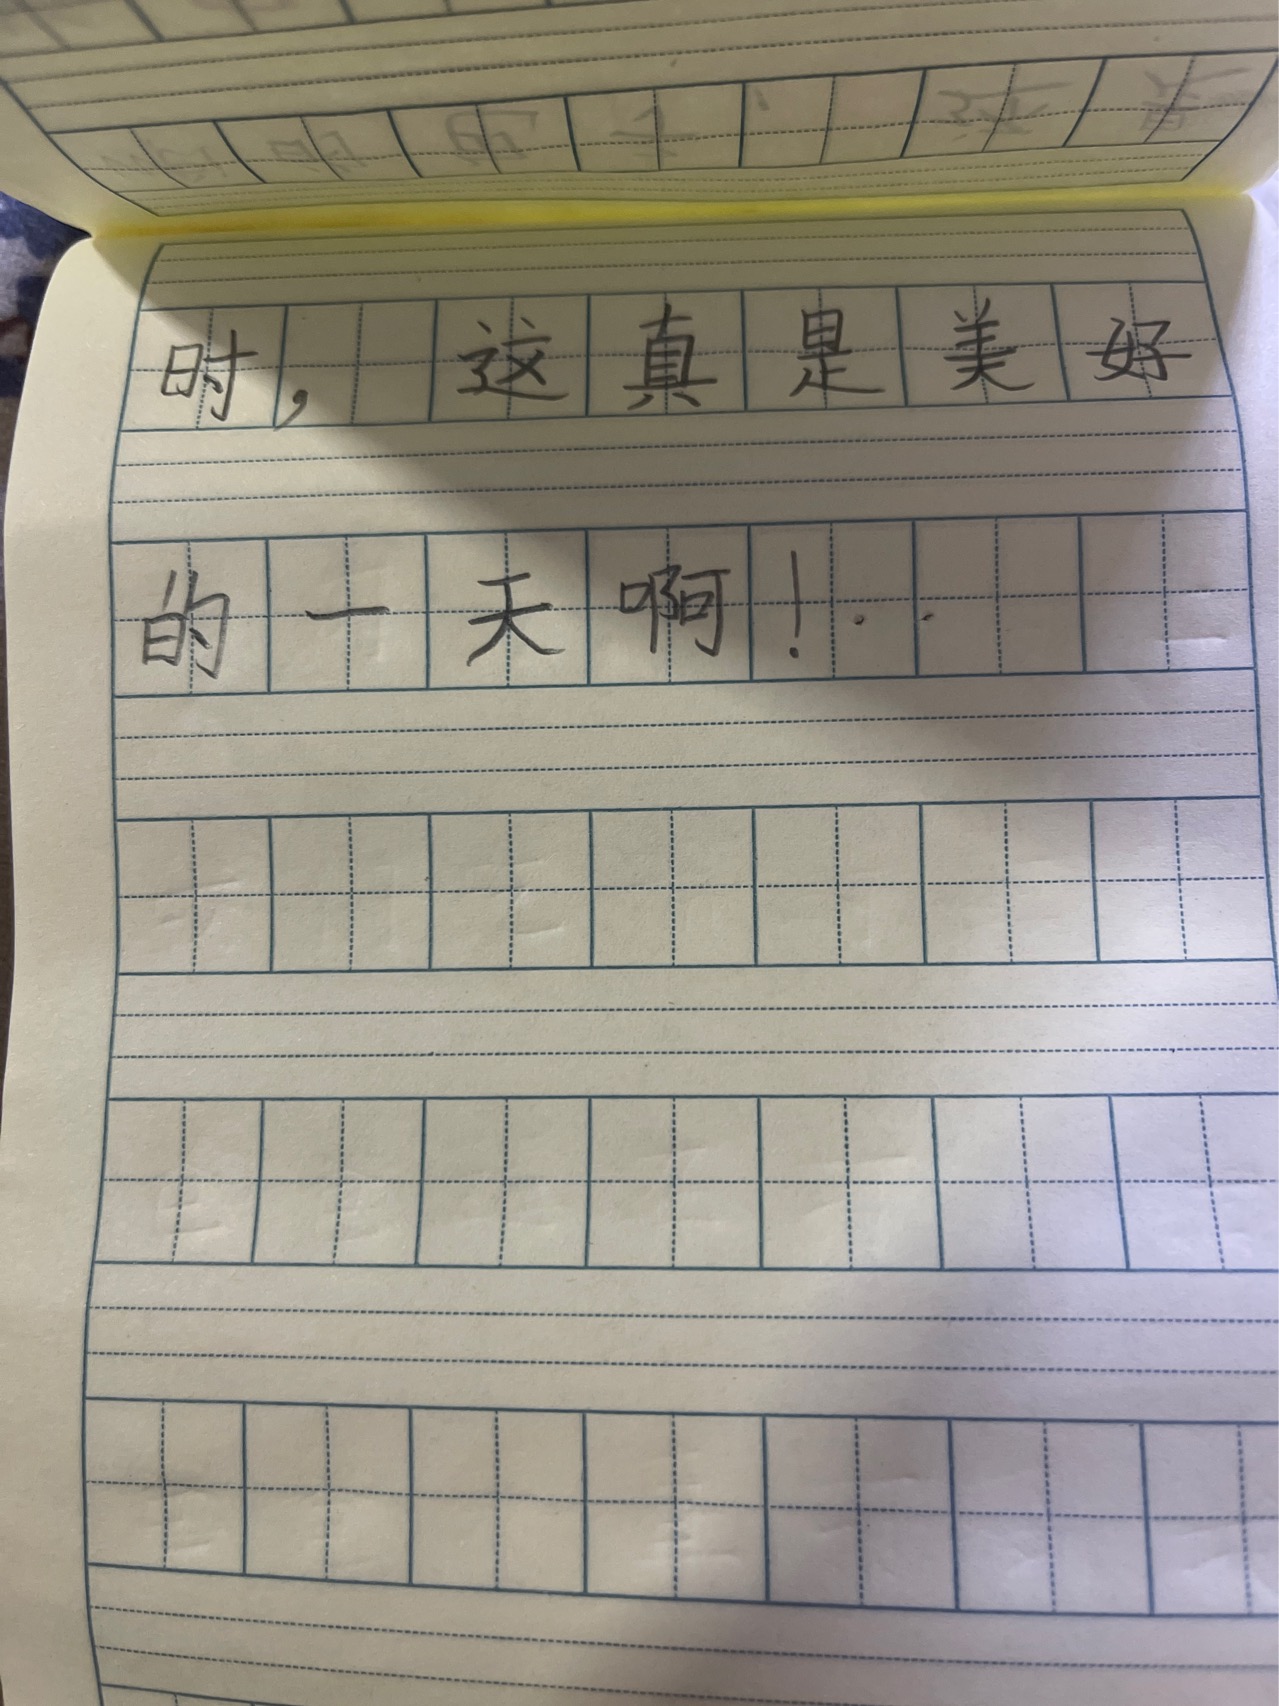 时，这真是美好
的一天啊！